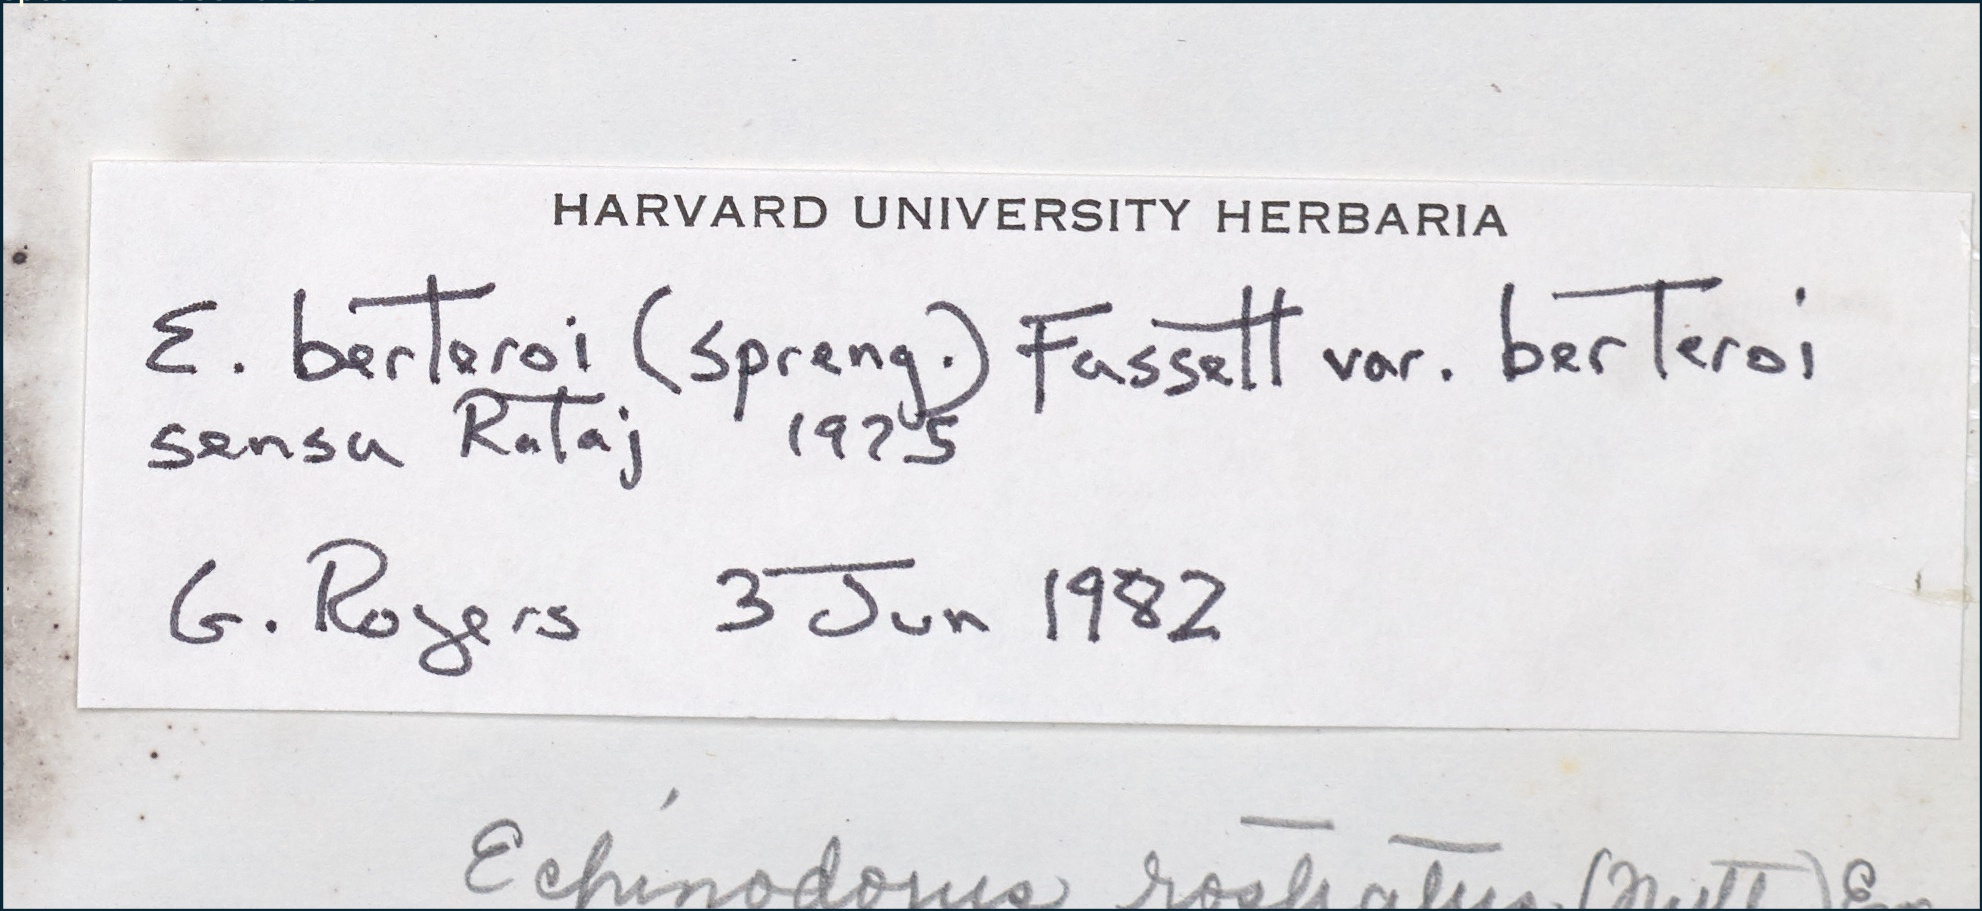 HARVARD UNIVERSITY HERBARIA
E. berteroi (Spreng.) Fassett var. berteroi
sensu Rataj 1975
G. Rogers 3 Jun 1982
Echinodorus rostratus (Nutt.)